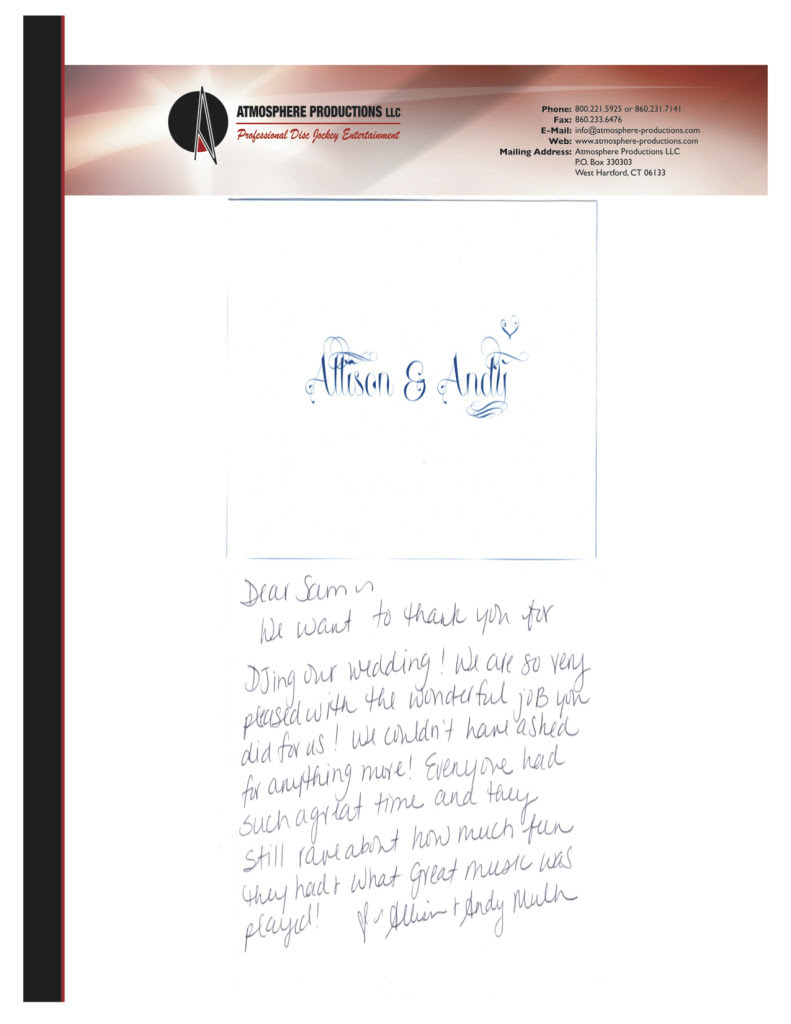 ATMOSPHERE PRODUCTIONS LLC
Professional Disc Jockey Entertainment
Phone: 800.221.5925 or 860.231.7141
Fax: 860.233.6476
E-Mail: info@atmosphere-productions.com
Web: www.atmosphere-productions.com
Mailing Address: Atmosphere Productions LLC
P.O. Box 330303
West Hartford, CT 06133
Allison & Andy
Dear Sam ~
We want to thank you for
DJing our wedding! We are so very
pleased with the wonderful joB you
did for us! We couldn't have asked
for anything more! Everyone had
such a great time and they
still rave about how much fun
they had + what great music was
played! ~ Allison + Andy